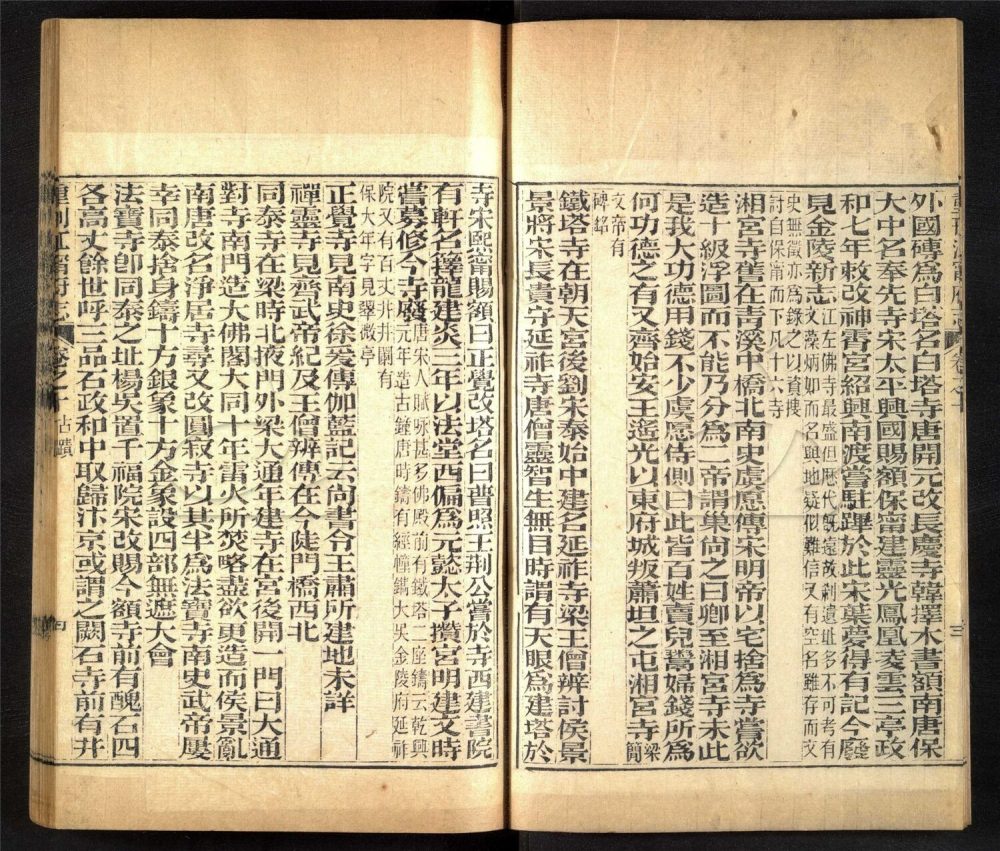 外國磚爲白塔名白塔寺唐開元改長慶寺韓擇木書額南唐保
大中名奉先寺宋太平興國賜額保甯建靈光鳳凰凌雲三亭政
和七年敕改神霄宮紹興南渡嘗駐蹕於此宋葉夢得有記今廢
見金陵新志江左佛寺最盛但歷代旣遠故刹遺址多不可考有
文藻炳如而名與地疑似難信又有空名雖存而文
史無徵亦爲錄之以資搜
討自保甯而下凡十六寺
湘宮寺舊在青溪中橋北南史虞愿傳宋明帝以宅捨爲寺嘗欲
造十級浮圖而不能乃分爲二帝謂巢尚之曰卿至湘宮寺未此
是我大功德用錢不少虞愿侍側曰此皆百姓賣兒鬻婦錢所爲
何功德之有又齊始安王遙光以東府城叛蕭坦之屯湘宮寺梁
簡
文帝有
碑銘
鐵塔寺在朝天宮後劉宋泰始中建名延祚寺梁王僧辨討侯景
景將宋長貴守延祚寺唐僧靈智生無目時謂有天眼爲建塔於
卷之十
三
寺宋熙甯賜額曰正覺改塔名曰普照王荆公嘗於寺西建書院
有軒名籜龍建炎三年以法堂西偏爲元懿太子攢宮明建文時
嘗募修今寺廢唐宋人賦咏甚多佛殿前有鐵塔二座鑄云乾興
元年造古鐘唐時鑄有經幢鐫大吳金陵府延祚
院又有百丈井井闌有
保大年字見翠微亭
正覺寺見南史徐爰傳伽藍記云尚書令王肅所建地未詳
禪靈寺見齊武帝紀及王僧辨傳在今陡門橋西北
同泰寺在梁時北掖門外梁大通年建寺在宮後開一門曰大通
對寺南門造大佛閣大同十年雷火所焚略盡欲更造而侯景亂
南唐改名淨居寺尋又改圓寂寺以其半爲法寶寺南史武帝屢
幸同泰捨身鑄十方銀象十方金象設四部無遮大會
法寶寺卽同泰之址楊吳置千福院宋改賜今額寺前有醜石四
各高丈餘世呼三品石政和中取歸汴京或謂之闕石寺前有井
重刊江甯府志
卷之十 古蹟
四